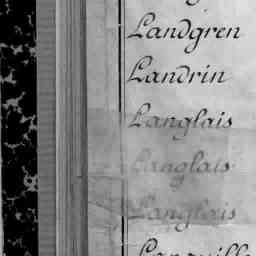 Landgren
Landrin
Langlais
Langlais
Langlais